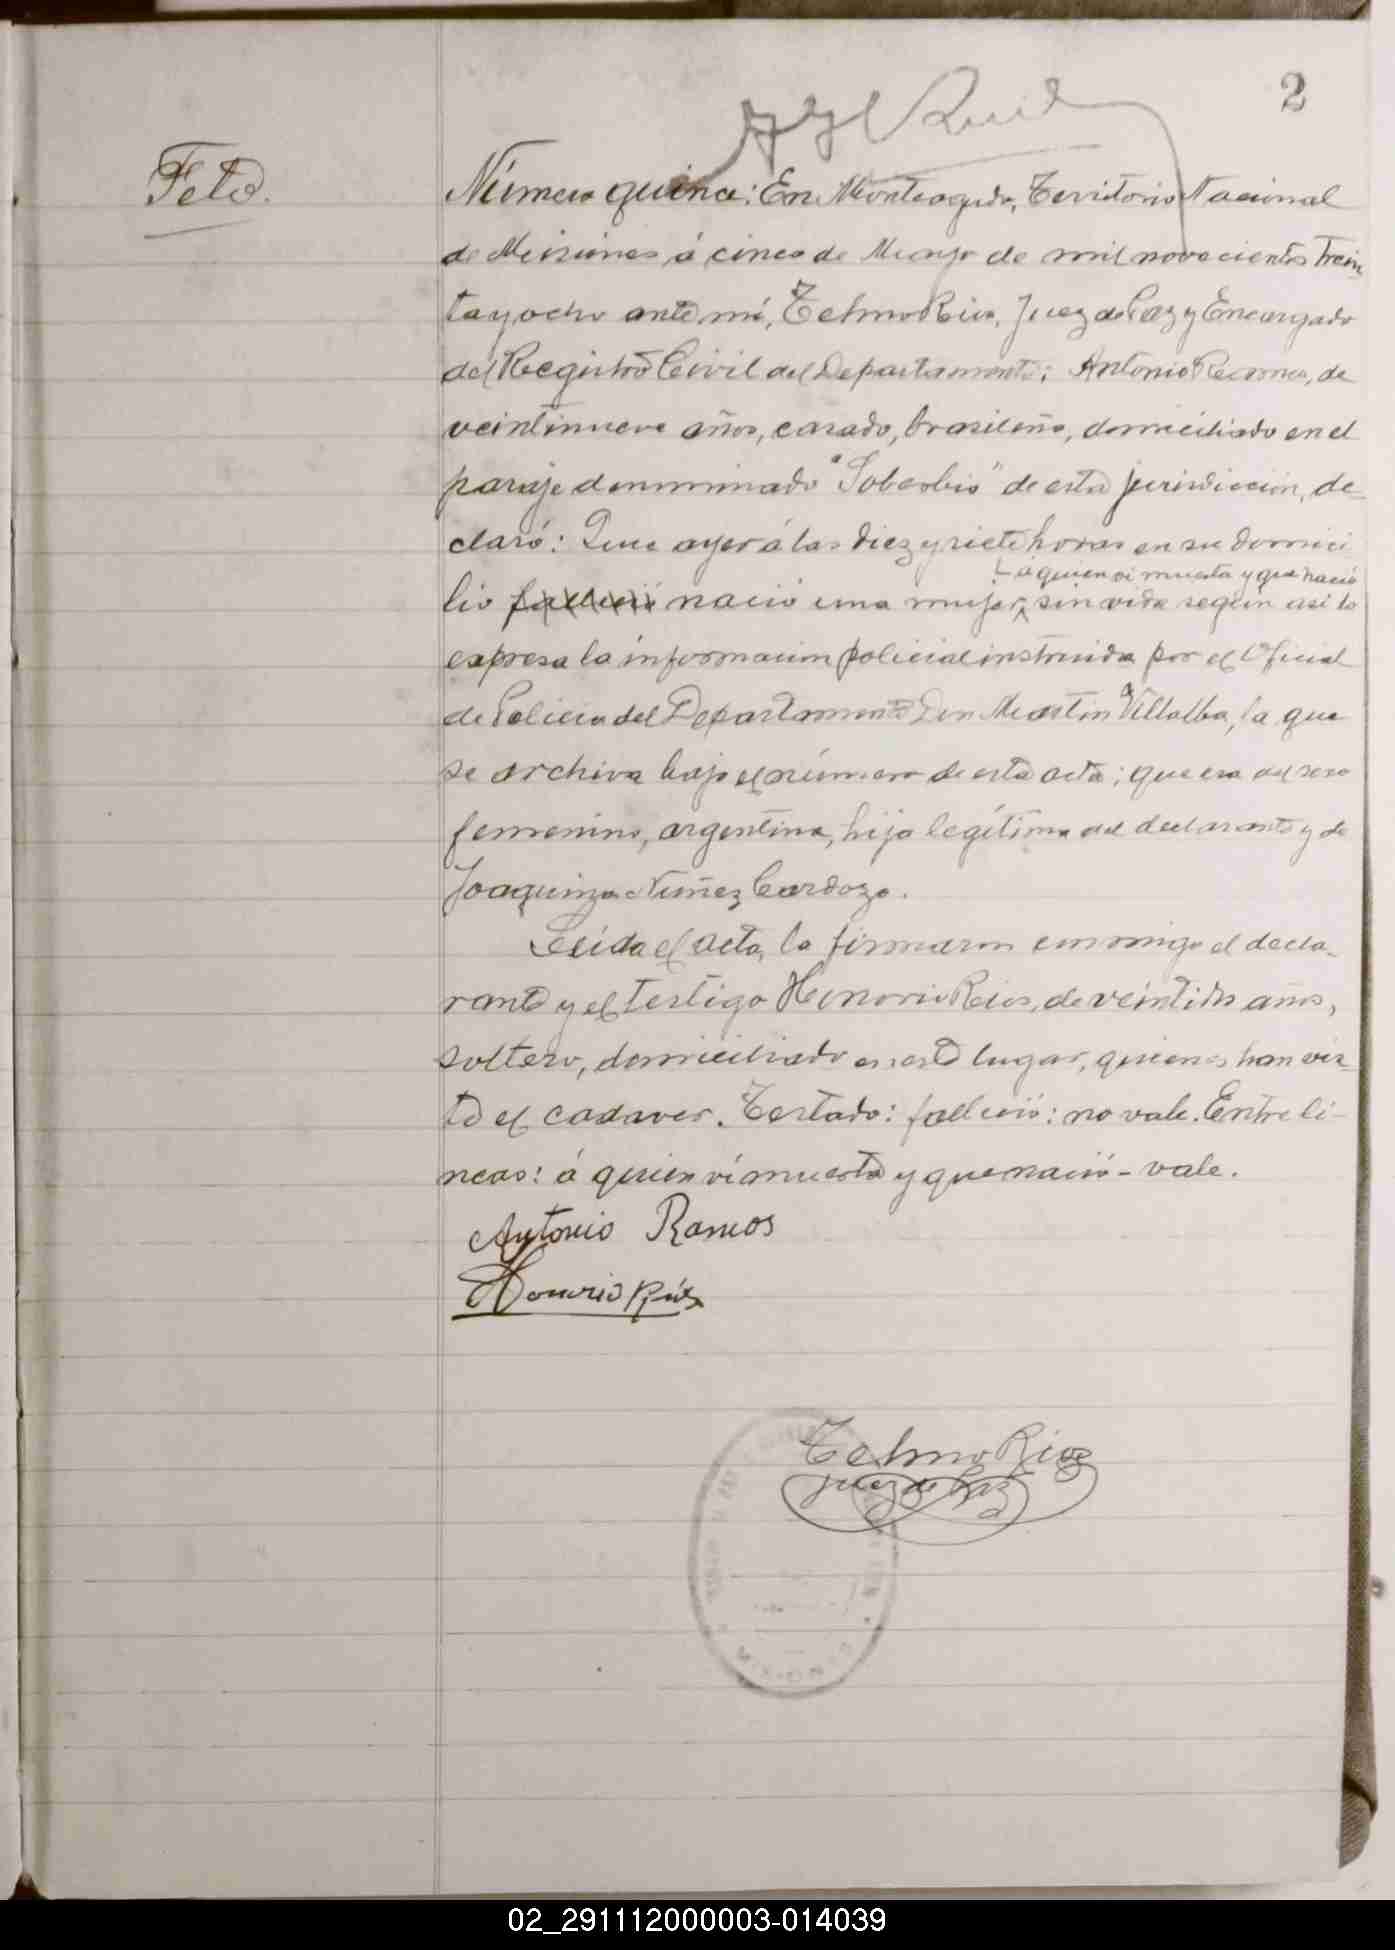 2
Feto.
Número quince: En Monteagudo, Territorio Nacional
de Misiones á cinco de Mayo de mil novecientos trein
ta y ocho ante mí, Telmo Rios, Juez de Paz y Encargado
del Registro Civil del Departamento; Antonio Ramos, de
veintinueve años, casado, brasileño, domiciliado en el
paraje denominado "Soberbio" de esta jurisdicción, de-
claró: Que ayer á las diez y siete horas en su domici
á quien ví muerta y que nació
lio falleció nació una mujer, sin vida según así lo
expresa la información policial instruida por el Oficial
de Policia del Departamento Don Martin A Villalba, la que
se archiva bajo el número de esta acta; que era del sexo
femenino, argentina, hija legítima del declarante y de
Joaquina Nuñez Cardozo.
Leída el acta, la firmaron conmigo el decla-
rante y el testigo Honorio Rios, de veintidos años,
soltero, domiciliado en este lugar, quienes han vis-
to el cadaver. Testado: falleció: no vale. Entre lí-
neas: á quien ví muerta y que nació - vale.
Antonio Ramos
Honorio Ríos
Telmo Rios
Juez de Paz
02_291112000003-014039